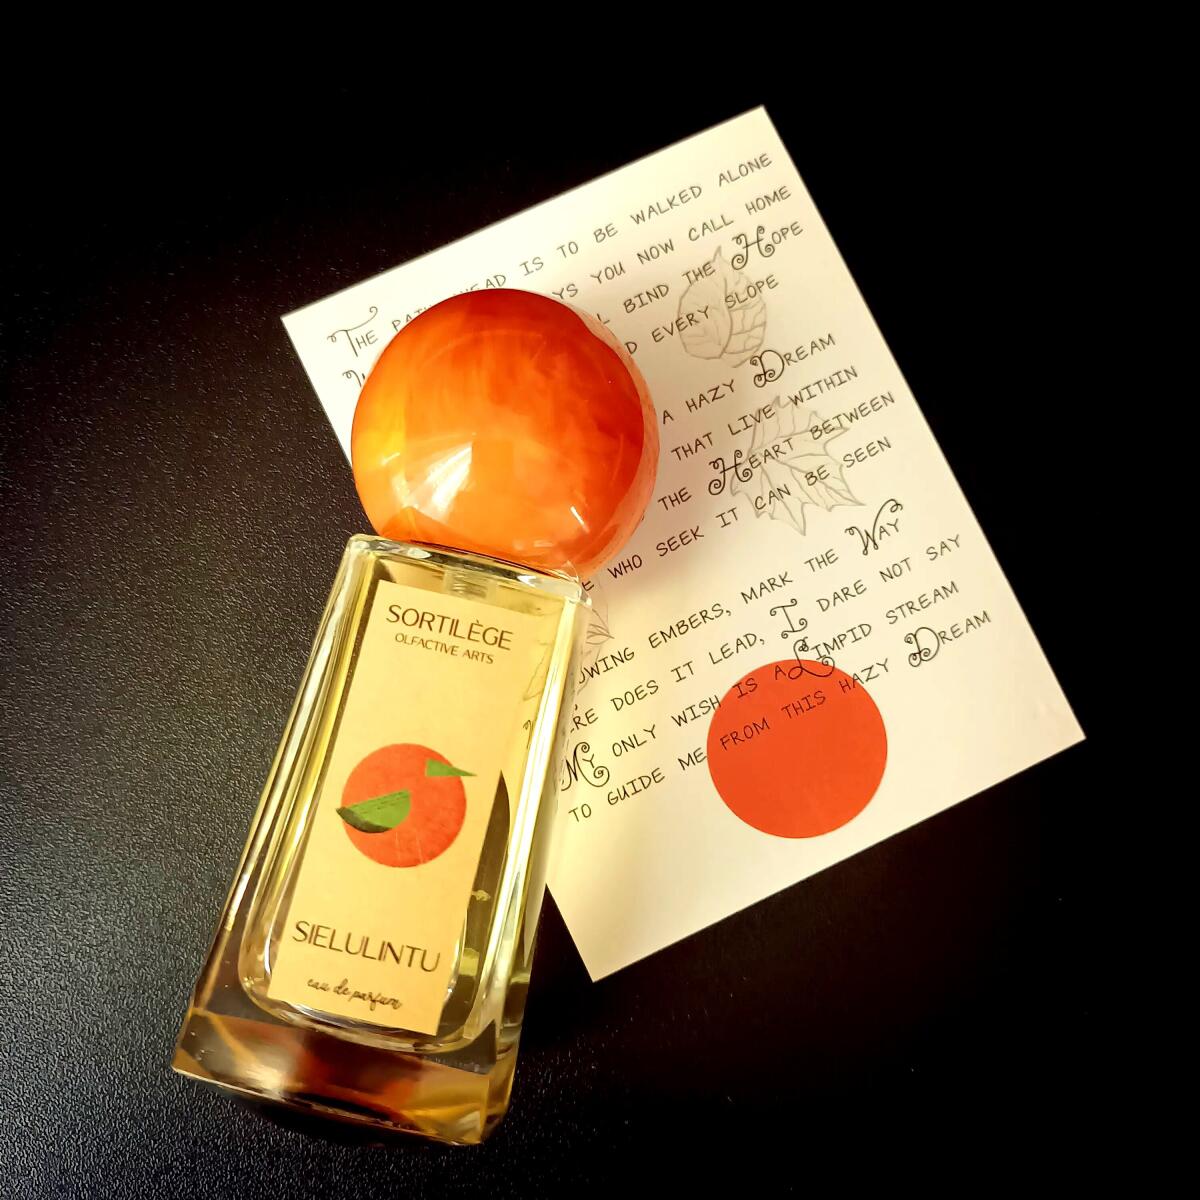 THE PATH AHEAD IS TO BE WALKED ALONE
YS YOU NOW CALL HOME
BIND THE HOPE
EVERY SLOPE
A HAZY DREAM
THAT LIVE WITHIN
THE HEART BETWEEN
WHO SEEK IT CAN BE SEEN
OWING EMBERS, MARK THE WAY
ERE DOES IT LEAD, I DARE NOT SAY
MY ONLY WISH IS A LIMPID STREAM
TO GUIDE ME FROM THIS HAZY DREAM
SORTILÈGE
OLFACTIVE ARTS
SIELULINTU
eau de parfum